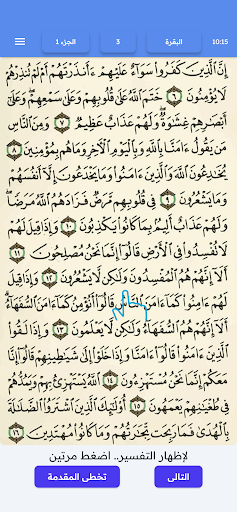 10:15 البقرة 3 الجزء 1
إِنَّ ٱلَّذِينَ كَفَرُوا۟ سَوَآءٌ عَلَيْهِمْ ءَأَنذَرْتَهُمْ أَمْ لَمْ تُنذِرْهُمْ
لَا يُؤْمِنُونَ ٦ خَتَمَ ٱللَّهُ عَلَىٰ قُلُوبِهِمْ وَعَلَىٰ سَمْعِهِمْ ۖ وَعَلَىٰٓ
أَبْصَٰرِهِمْ غِشَٰوَةٌ ۖ وَلَهُمْ عَذَابٌ عَظِيمٌ ٧ وَمِنَ ٱلنَّاسِ
مَن يَقُولُ ءَامَنَّا بِٱللَّهِ وَبِٱلْيَوْمِ ٱلْءَاخِرِ وَمَا هُم بِمُؤْمِنِينَ ٨
يُخَٰدِعُونَ ٱللَّهَ وَٱلَّذِينَ ءَامَنُوا۟ وَمَا يَخْدَعُونَ إِلَّآ أَنفُسَهُمْ
وَمَا يَشْعُرُونَ ٩ فِى قُلُوبِهِم مَّرَضٌ فَزَادَهُمُ ٱللَّهُ مَرَضًا ۖ
وَلَهُمْ عَذَابٌ أَلِيمٌۢ بِمَا كَانُوا۟ يَكْذِبُونَ ١٠ وَإِذَا قِيلَ لَهُمْ
لَا تُفْسِدُوا۟ فِى ٱلْأَرْضِ قَالُوٓا۟ إِنَّمَا نَحْنُ مُصْلِحُونَ ١١
أَلَآ إِنَّهُمْ هُمُ ٱلْمُفْسِدُونَ وَلَٰكِن لَّا يَشْعُرُونَ ١٢ وَإِذَا قِيلَ
لَهُمْ ءَامِنُوا۟ كَمَآ ءَامَنَ ٱلنَّاسُ قَالُوٓا۟ أَنُؤْمِنُ كَمَآ ءَامَنَ ٱلسُّفَهَآءُ ۗ
أَلَآ إِنَّهُمْ هُمُ ٱلسُّفَهَآءُ وَلَٰكِن لَّا يَعْلَمُونَ ١٣ وَإِذَا لَقُوا۟
ٱلَّذِينَ ءَامَنُوا۟ قَالُوٓا۟ ءَامَنَّا وَإِذَا خَلَوْا۟ إِلَىٰ شَيَٰطِينِهِمْ قَالُوٓا۟ إِنَّا
مَعَكُمْ إِنَّمَا نَحْنُ مُسْتَهْزِءُونَ ١٤ ٱللَّهُ يَسْتَهْزِئُ بِهِمْ وَيَمُدُّهُمْ
فِى طُغْيَٰنِهِمْ يَعْمَهُونَ ١٥ أُو۟لَٰٓئِكَ ٱلَّذِينَ ٱشْتَرَوُا۟ ٱلضَّلَٰلَةَ
بِٱلْهُدَىٰ فَمَا رَبِحَت تِّجَٰرَتُهُمْ وَمَا كَانُوا۟ مُهْتَدِينَ ١٦
لإظهار التفسير.. اضغط مرتين
التالى
تخطى المقدمة